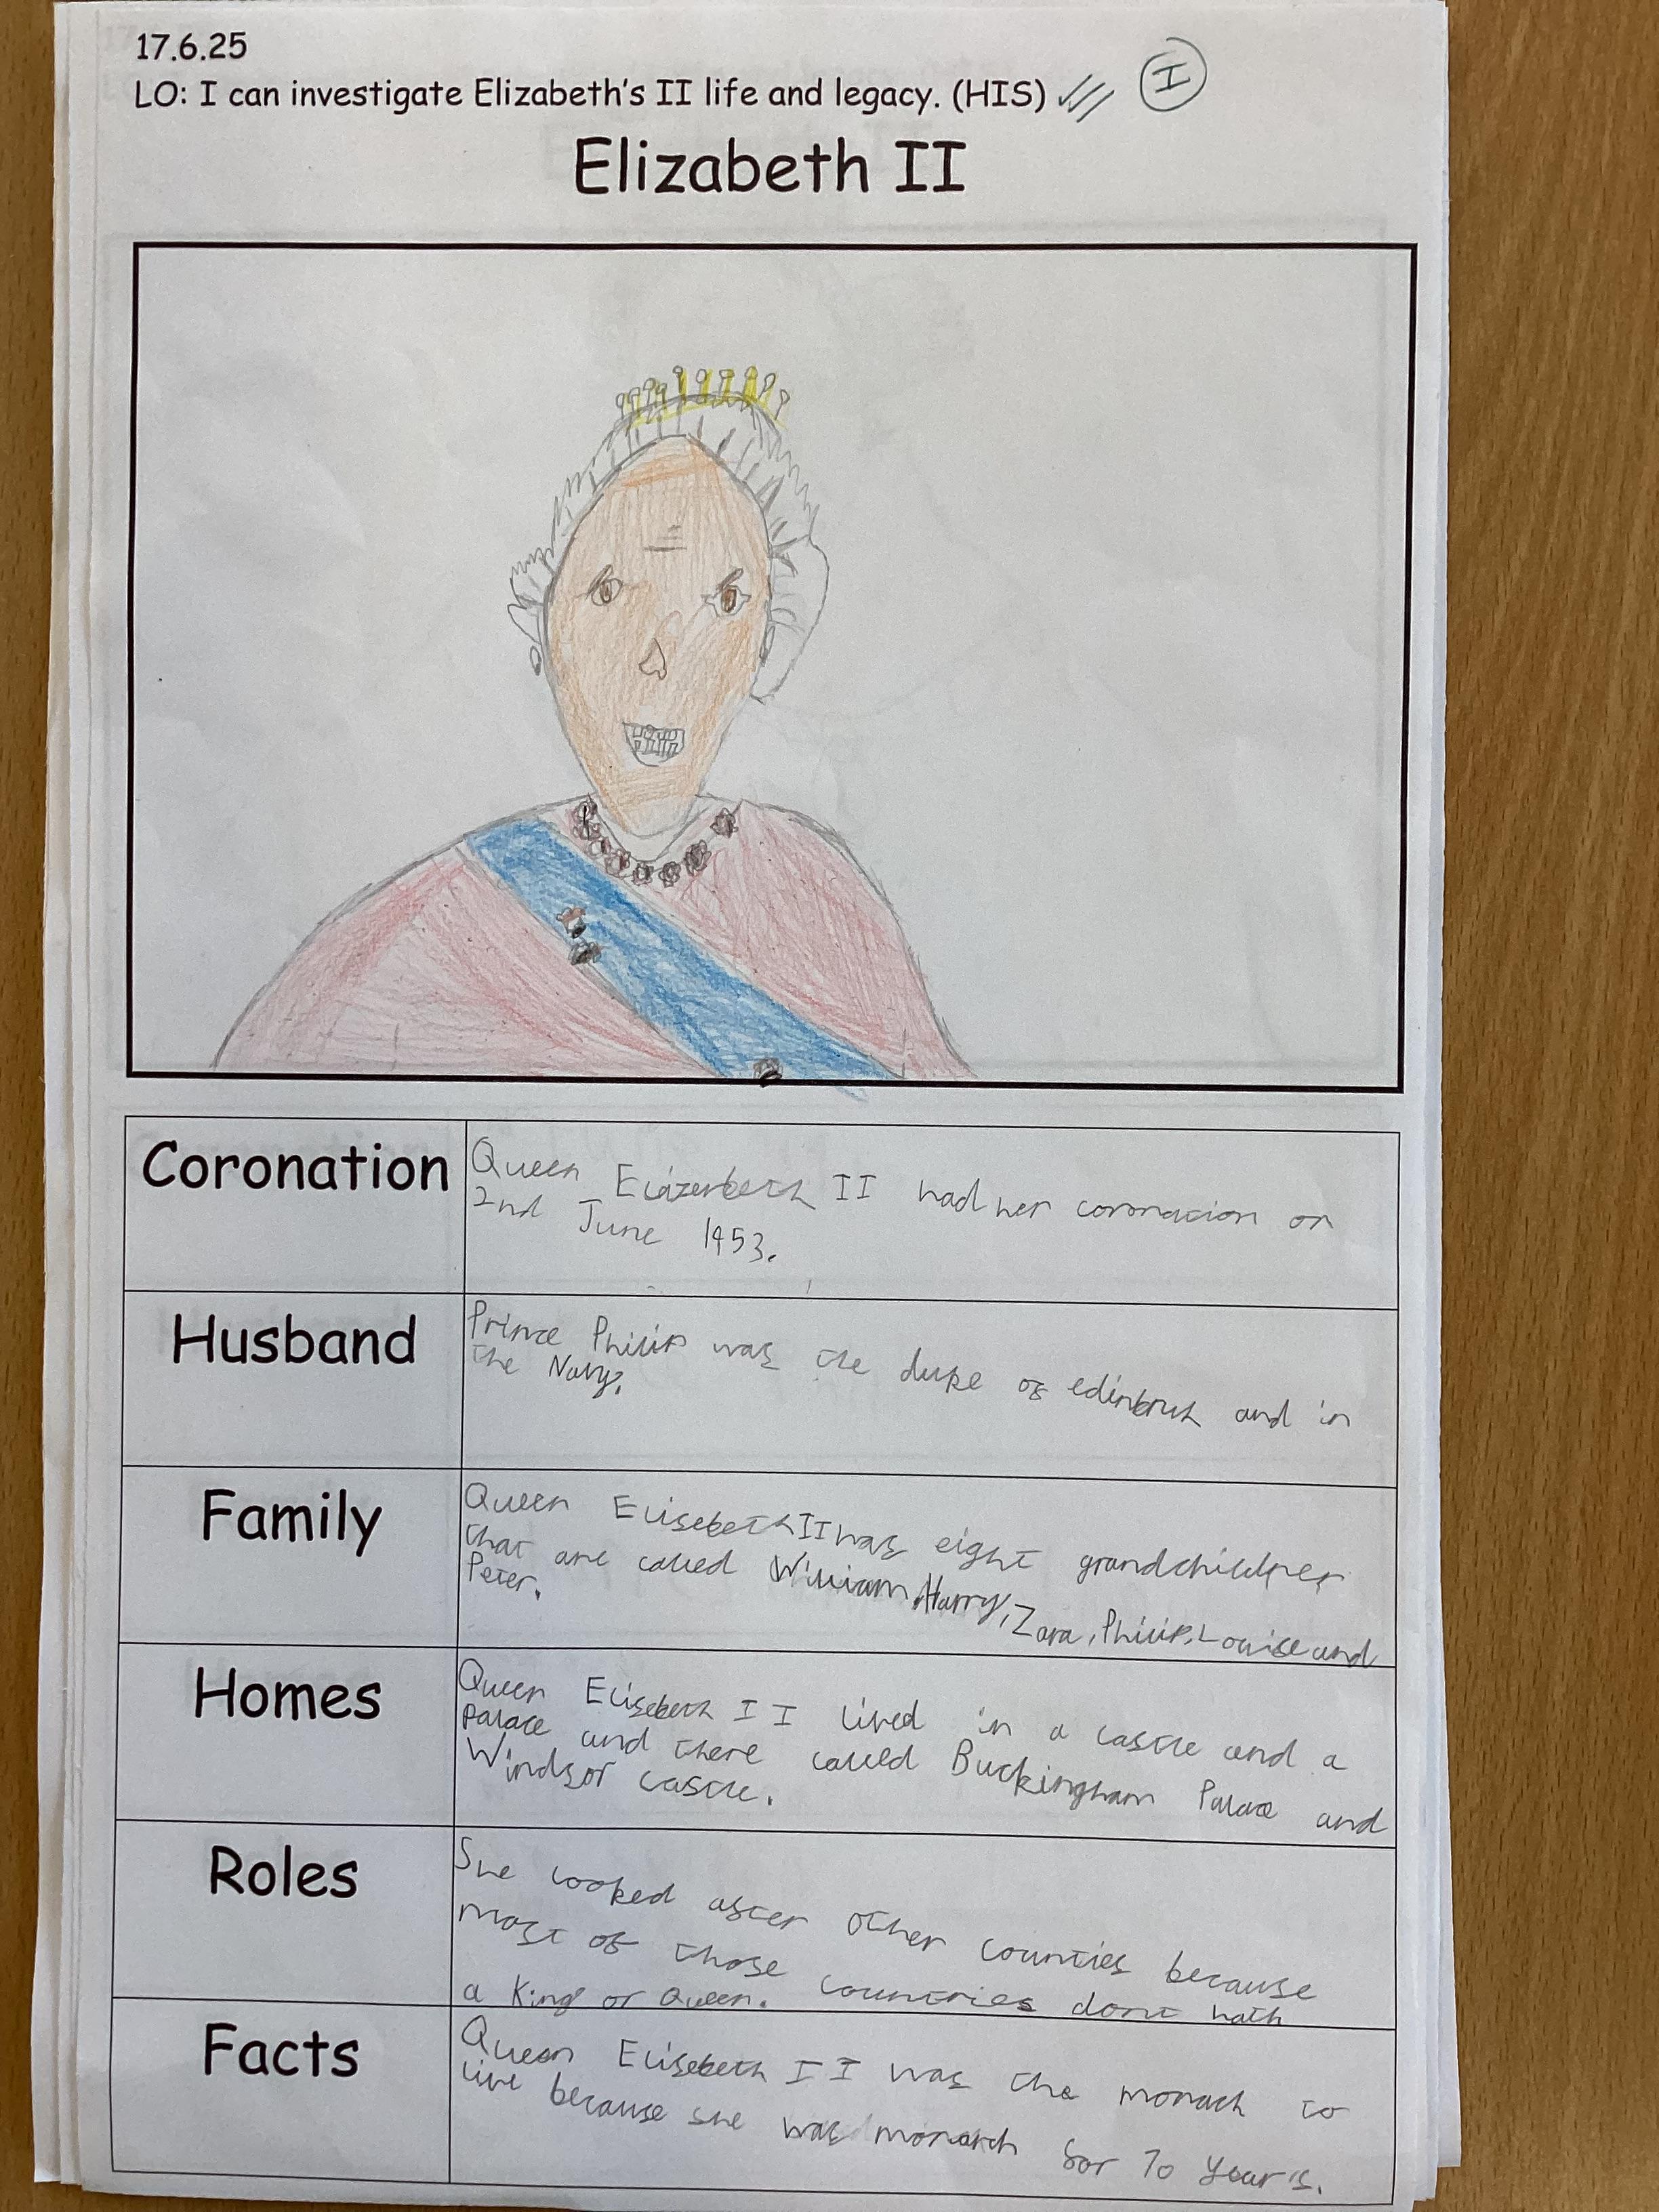 17.6.25
LO: I can investigate Elizabeth's II life and legacy. (HIS) I
Elizabeth II
Coronation
Queen Elizerbeth II had her coronation on
2nd June 1953.
Husband
Prince Philip was the duke of edinbruh and in
the Navy.
Family
Queen Elisebeth II was eight grandchildren
that are called William, Harry, Zara, Philip, Louise and
Peter.
Homes
Queen Elisebeth II lived in a castle and a
Palace and there called Buckingham Palace and
Windsor castle.
Roles
She looked after other counties because
most of those countries dont hath
a King or Queen.
Facts
Queen Elisebeth II was the monach to
live because she was monarch for 70 years.